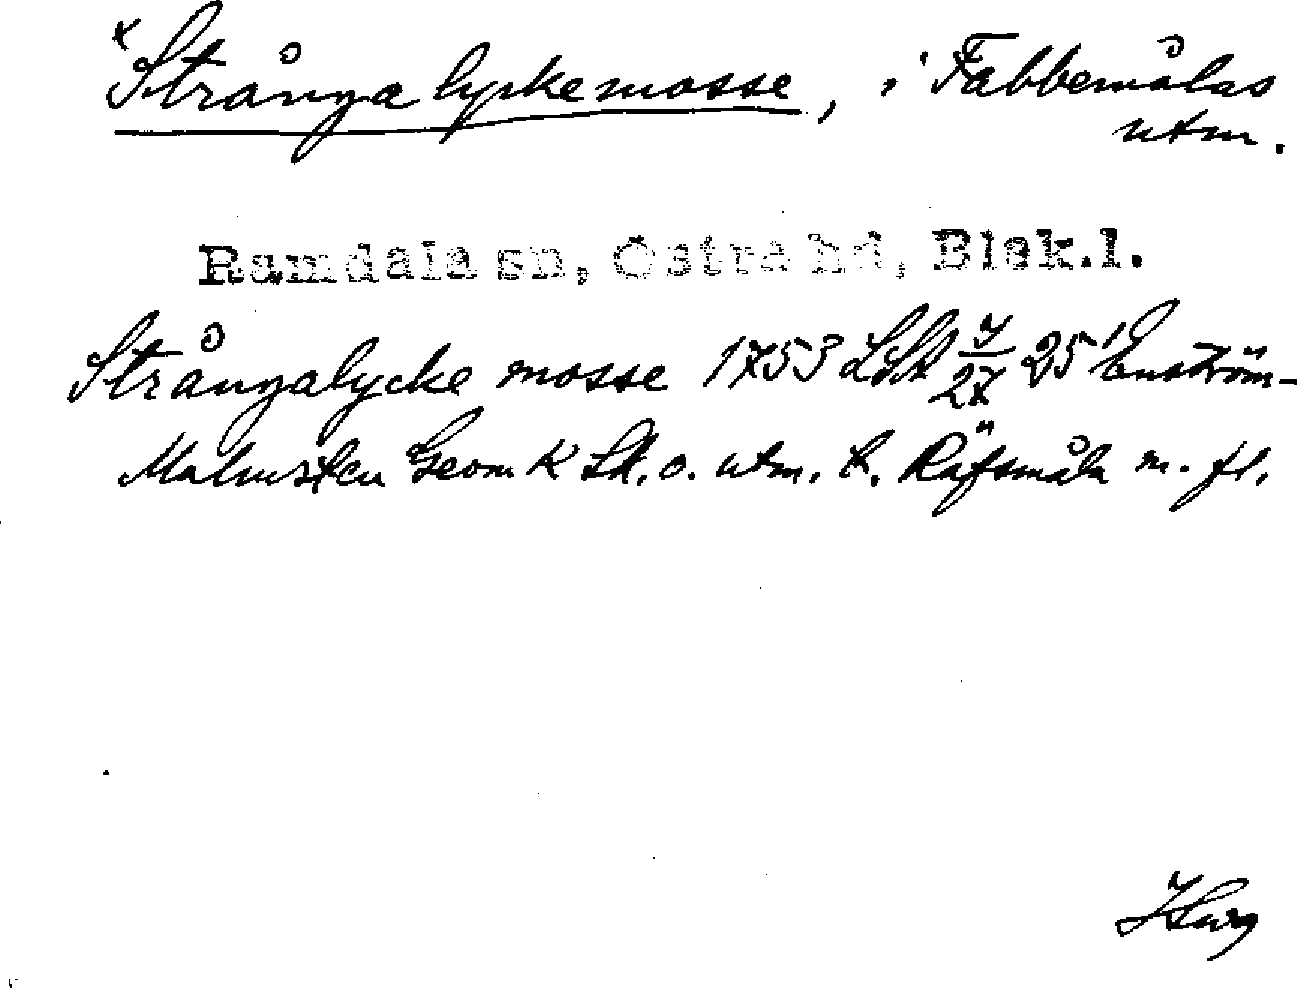 *Strångalyckemosse, i Fabbemålas
utm.
Ramdala sn, Östra hd, Blek.l.
Strångalycke mosse 1753 LSA 7/27 25 Enström-
Malmsten Geom K Lt. o. utm. t. Räfsmåla m. fl.